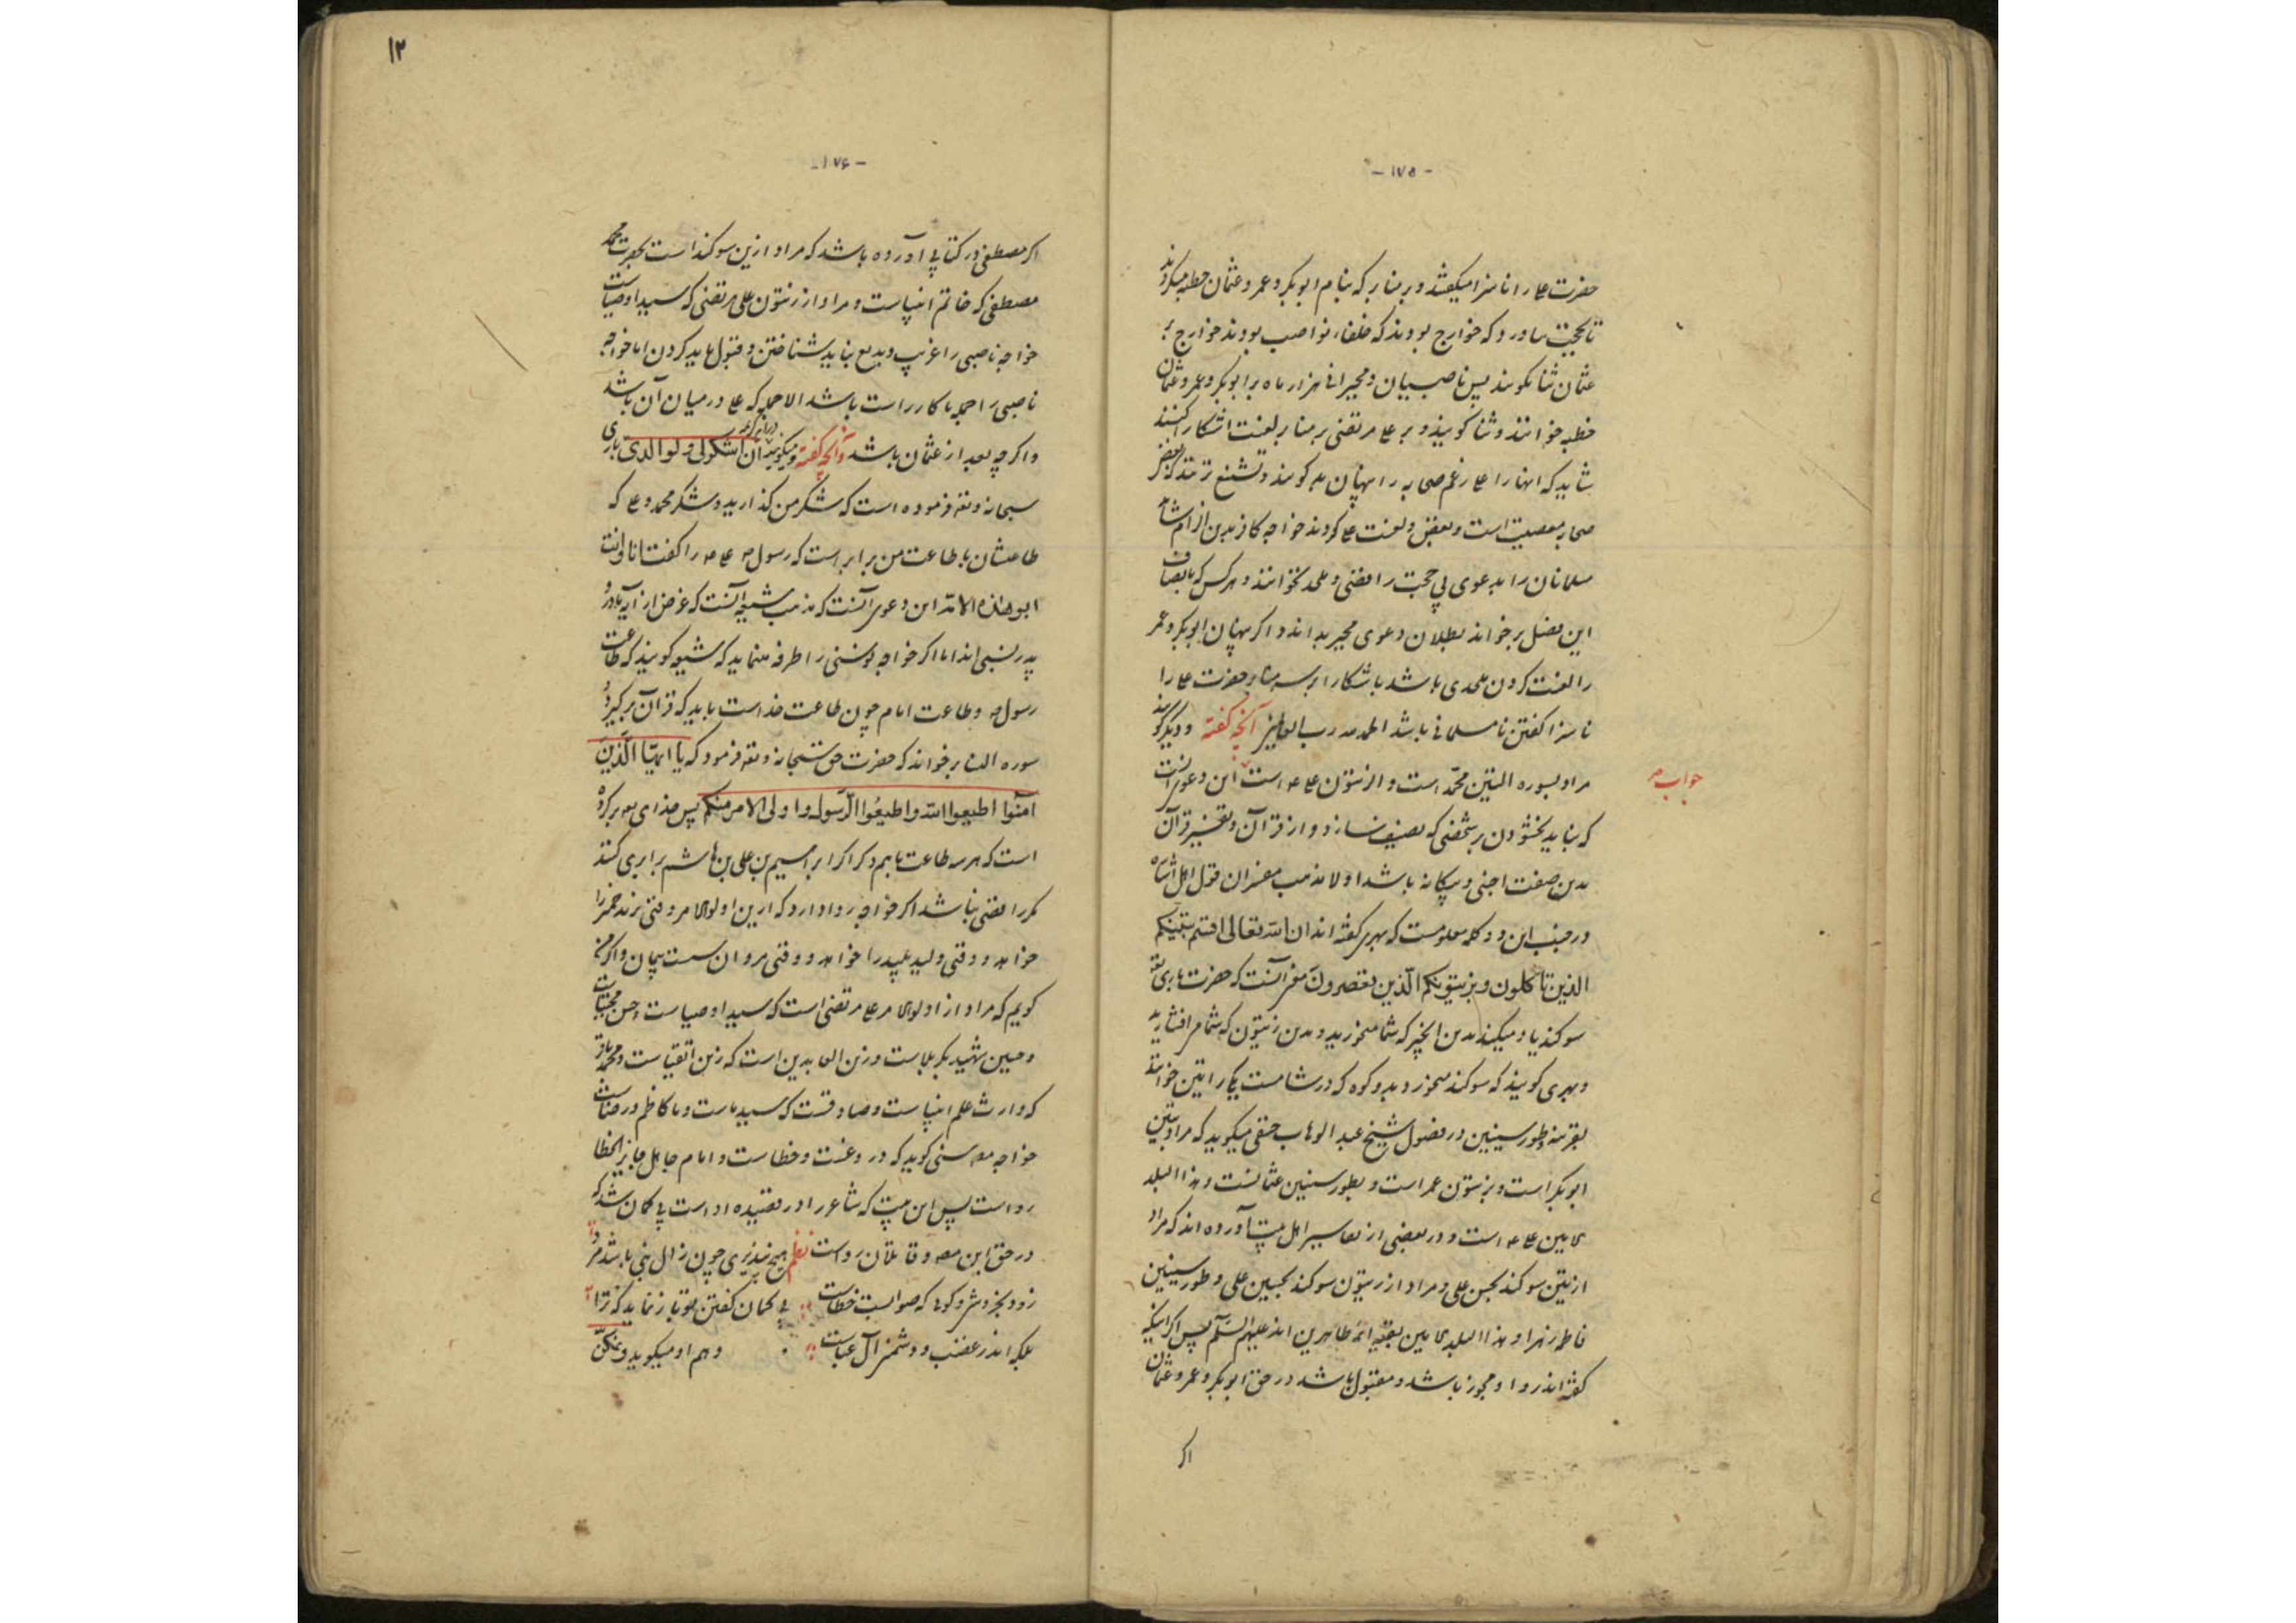 - ۱۷۵ -
حضرت علی را ناسزا میگفتند و بر منابر که بنام ابوبکر و عمر و عثمان خطبه میکردند
تا بحجت ماورد که خوارج بودند که خلفاء نواصب بودند خوارج بر
عثمان ثنا نگویند پس ناصبیان و مجبران هزار ماه بر ابوبکر و عمر و عثمان
خطبه خوانند و ثنا گویند و بر علی مرتضی بر منابر لعنت اشکارا کنند
شاید که انها را علی رغم صحابه را پنهان بد گویند و تشنیع نزنند که بغض
صحابه معصیت است و بغض و لعنت علی کردند خواجه کافر بدین از ام شام
مسلمانان را بدعوی بی حجت رافضی و ملحد نخوانند و هر کس که بانصاف
این فصل برخواند بطلان دعوی مجبر بداند و اگر پنهان ابوبکر و عمر
را لعنت کردن ملحدی باشد باشکارا بر سر منابر حضرت علی را
ناسزا گفتن نامسلمانی باشد الحمد لله رب العالمین آنچه گفته و دیگر گویند
جواب
مراد بسوره التین محمد است و الزیتون علی است این دعوی انست
که بناید بخشودن بر شخصی که تصنیف سازد و از قرآن و تفسیر قرآن
بدین صفت اجنبی و بیگانه باشد اولا مذهب مفسران قول اهل اشاره
در جنب این دو کلمه معلومست که بهری گفته اند ان الله تعالی اقسم بتینکم
الذین تاکلون و بزیتونکم الذین تعصرون معنی آنست که حضرت باری تعه
سوگند یاد میکند بدین انجیر که شما میخورید و بدین زیتون که شما میافشارید
و بهری گویند که سوگند میخورد بدو کوه که در شامست یکی را تین خوانند
بقرینه وطور سینین در فصول شیخ عبد الوهاب حنفی میگوید که مراد بتین
ابوبکر است و بزیتون عمر است و بطور سینین عثمانست و هذا البلد
الامین علی است و در بعضی از تفاسیر اهل بیت آورده اند که مراد
از تین سوگند بحسن علی و مراد از زیتون سوگند بحسین علی و طور سینین
فاطمه زهرا و هذا البلد الامین بقیه ائمه طاهرین اند علیهم السلام پس اگر اینکه
گفته اند روا و مجوز باشد و مقبول باشد در حق ابوبکر و عمر و عثمان
اگر
۱۲
- ۱۷۶ -
اگر مصطفی در کتابی آورده باشد که مراد ازین سوگند است بحضرت محمد
مصطفی که خاتم انبیاست و مراد از زیتون علی مرتضی که سید اوصیاست
خواجه ناصبی را غریب و بدیع نباید شناختن و قبول باید کردن اما خواجه
ناصبی را همه با کار راست باشد الا جمله که علی در میان آن باشد
و اگر چه بعد از عثمان باشد و آنچه گفته و میگویند ان اشکرلی ولوالدی باری
سبحانه و تعه فرموده است که شکر من گذارید و شکر محمد و علی که
طاعتشان با طاعت من برابر است که رسول علی را گفت انا و انت
ابو هذه الامه این دعوی آنست که مذهب شیعه آنست که غرض از آیه مادر و
پدر نسبی اند اما اگر خواجه نوسنی را طرفه مینماید که شیعه گویند که طاعت
رسول و طاعت امام چون طاعت خداست باید که قرآن برگیرد و
سوره النساء برخواند که حضرت حق سبحانه و تعه فرمود که یا ایها الذین
آمنوا اطیعوا الله واطیعوا الرسول واولی الامر منکم پس خدای برابر کرده
است که هر سه طاعت باهم ذکر اگر ابراسیم بن علی بن هاشم برابری کند
مگر رافضی نباشد اگر خواجه روا دارد که ازین اولوالامر وقتی یزید خمر را
خواهد و وقتی ولید پلید را خواهد و وقتی مروان سست پیمان و اگر من
گویم که مراد از اولوالامر علی مرتضی است که سید اوصیاست و حسن مجتباست
و حسین شهید بکربلاست و زین العابدین است که زین اتقیاست و محمد باقر
که وارث علم انبیاست و صادقست که سید ماست و با کاظم و رضاست
خواجه سنی گوید که دروغست و خطاست و امام جاهل جایز الخطا
رواست پس این بیت که شاعر را در قصیده او است بی گمان شد که
در حق این و قائلان رواست نظم هیچ نپذیری چون زال نبی باشد مرد
زود بخروشی و گوئی که صوابست خطاست بی گمان گفتن تو باز نماید که ترا
بجکه اندر غضب و دشمنی آل عباست وهم او میگوید و ممکن